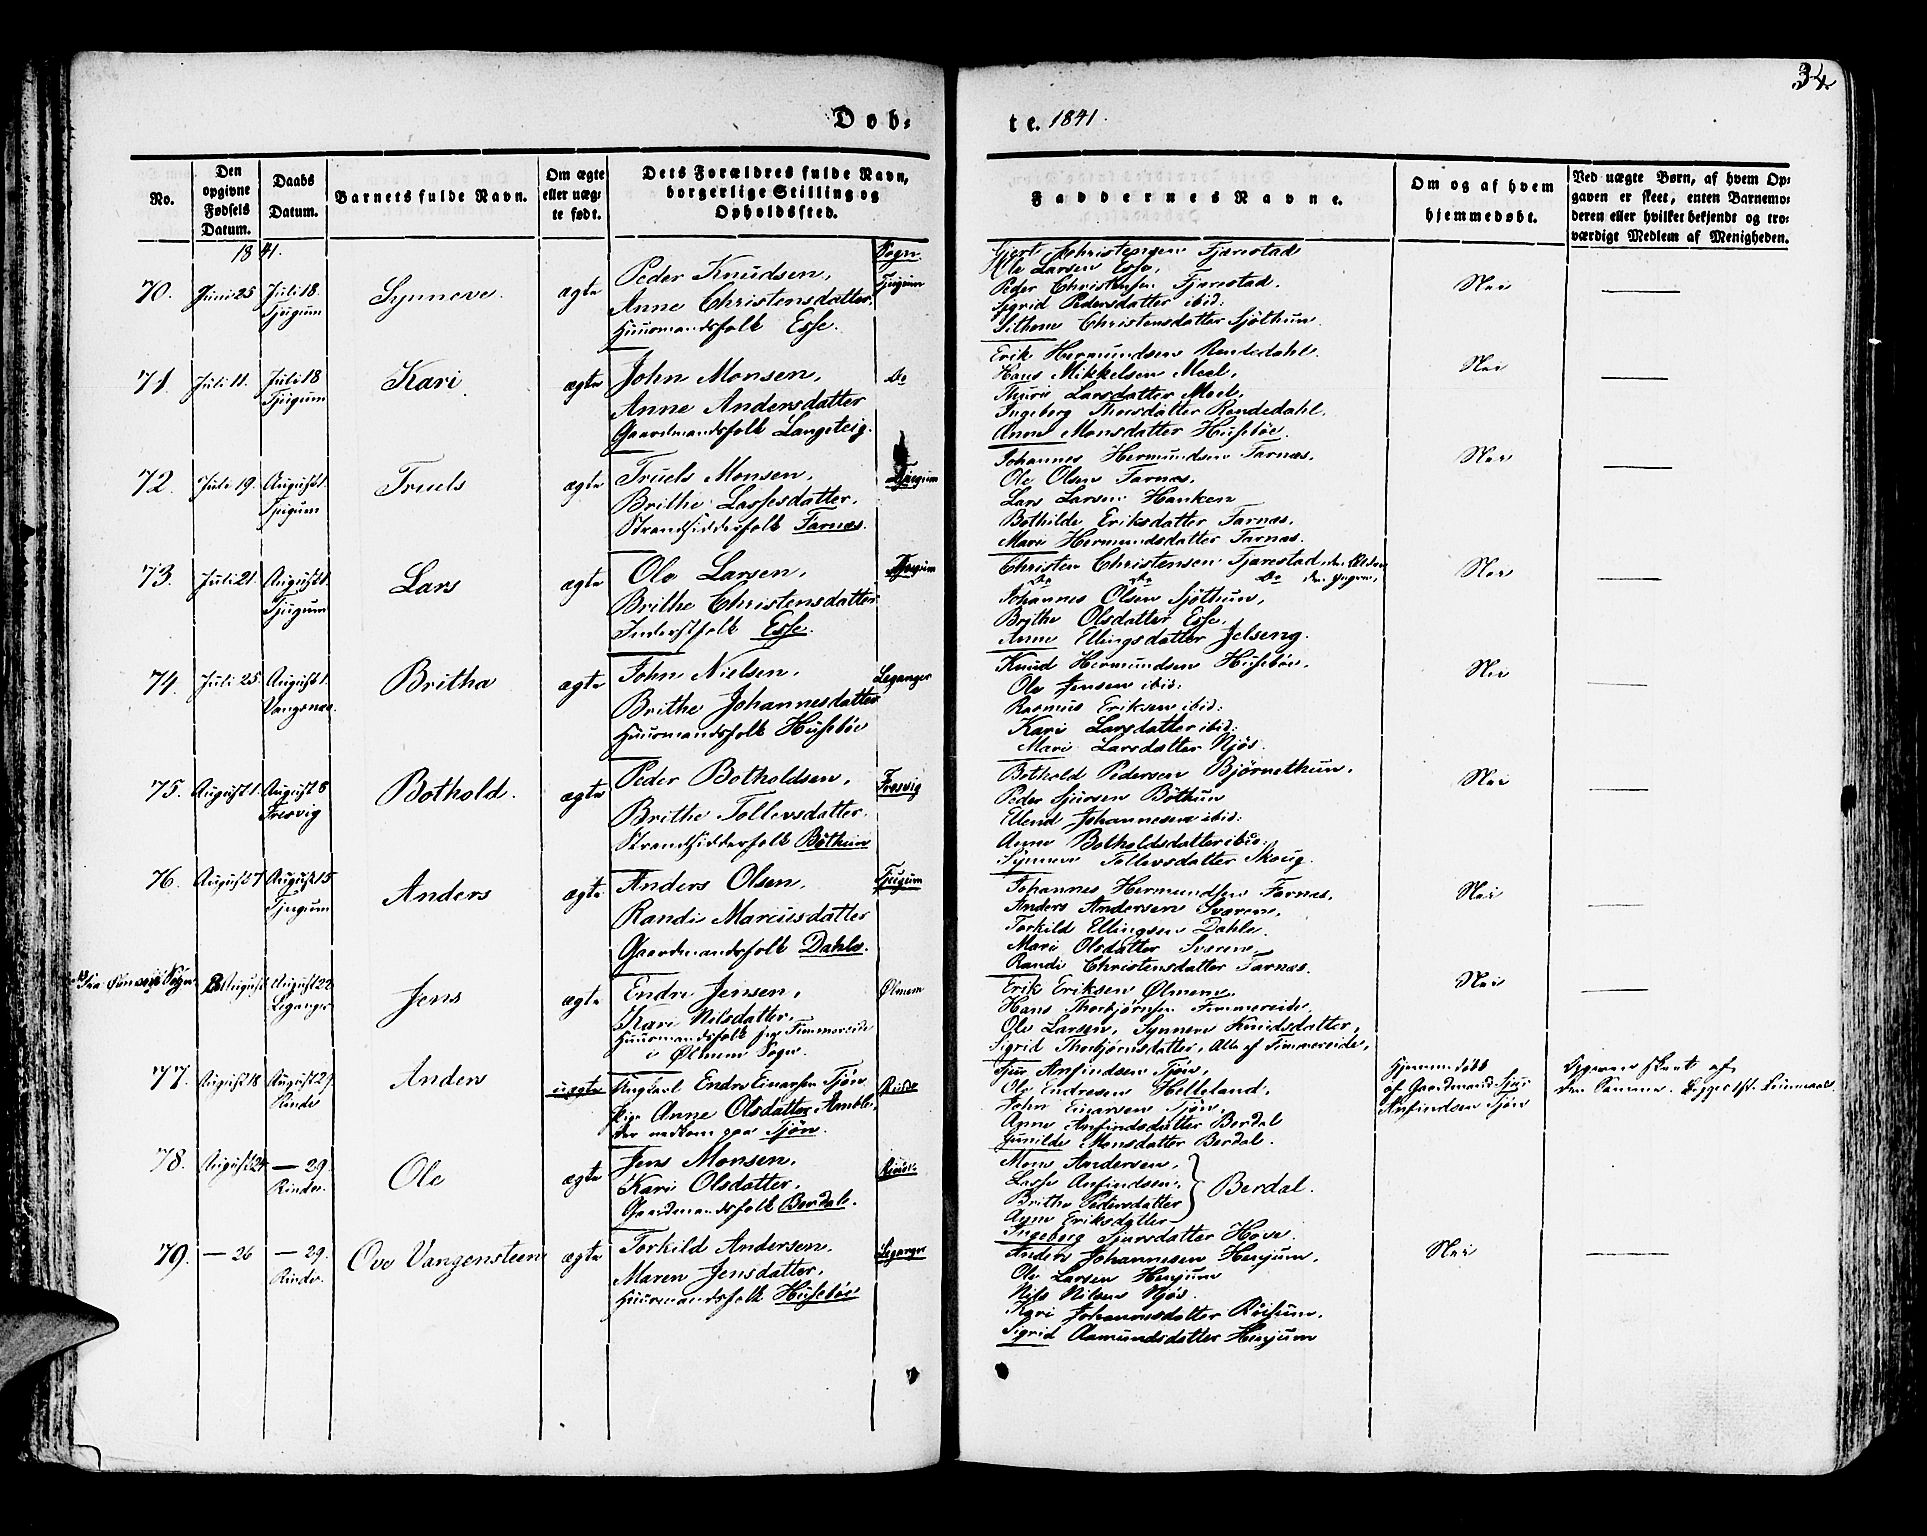 34
Døb-
te. 1841.
No.
Den opgivne Fødsels Datum.
Daabs Datum.
Barnets fulde Navn.
Om ægte eller uægte født.
Dets Forældres fulde Navn, borgerlige Stilling og Opholdssted.
Faddernes Navne.
Om og af hvem hjemmedøbt.
Ved uægte Børn, af hvem Opgaven er skeet, enten Barnemoderen eller hvilket bekjendt og troværdigt Medlem af Menigheden.
1841.
Sogn
70. Juni 25 Juli 18 Tjugum Synneve ægte
Peder Knudsen,
Anne Christensdatter
Huusmandsfolk Esse.
Tjugum
Christensen Tjærestad
Ole Larsen Esse,
Peder Christensen Tjærestad.
Sigrid Pedersdatter ibid:
Christensdatter Sjøthun.
Nei
71. Juli 11. Juli 18 Tjugum Kari ægte
John Monsen,
Anne Andersdatter
Gaardmandsfolk Langeteig.
Do
Erik Hermundsen Rendedahl.
Hans Mikkelsen Meel,
Thuri Larsdatter Meel,
Ingeborg Thorsdatter Rendedahl.
Anne Monsdatter Husebøe.
Nei
72. Juli 19. August 1. Tjugum Truels ægte
Truels Monsen,
Brithe Lassesdatter,
Strandsidderfolk Farnæs.
Tjugum
Johannes Hermundsen Farnæs.
Ole Olsen Farnæs,
Lars Larsen Hanken
Bothilde Eriksdatter Farnæs,
Mari Hermundsdatter Farnæs.
Nei
73. Juli 21. August 1. Tjugum Lars ægte
Ole Larsen,
Brithe Christensdatter
Inderstfolk Esse.
Tjugum
Christen Christensen Tjærestad den Eldre
Do Do Do den Yngre,
Johannes Olsen Sjøthun,
Brithe Olsdatter Esse,
Anne Ellingsdatter Jelseng.
Nei
74. Juli 25 August 1. Vangsnæs Britha ægte
John Nielsen,
Brithe Johannesdatter
Huusmandsfolk Husebøe
Leganger
Knud Hermundsen Husebøe,
Ole Jensen ibid:
Rasmus Eriksen ibid:
Kari Larsdatter ibid:
Mari Larsdatter Njøs.
Nei
75. August 1. August 8 Fresvig Bothold. ægte
Peder Botholdsen,
Brithe Tollevsdatter.
Strandsidderfolk Bøthun
Fresvig
Bothold Pedersen Bjørnethun.
Peder Sjursen Bøthun
Ellend Johannesen ibid:
Anne Botholdsdatter ibid:
Synneve Tollevsdatter Skoug.
Nei
76. August 7 August 15 Tjugum Anders ægte
Anders Olsen,
Randi Marcusdatter
Gaardmandsfolk Dahle.
Tjugum
Johannes Hermundsen Farnæs,
Anders Andersen Sværen,
Torkild Ellingsen Dahle,
Mari Olsdatter Sværen,
Randi Christensdatter Farnæs.
Nei
August August 22 Leganger Jens ægte
Endre Jensen,
Kari Nilsdatter,
Huusmandsfolk fra Fimmereide
i Ølmem Sogn.
Ølmem
Erik Eriksen Ølmem,
Hans Thorbjørnsen Fimmereide,
Ole Larsen, Synneve Knudsdatter,
Sigrid Thorbjørnsdatter, Alle af Fimmereide,
Nei
77. August 18 August 29. Rinde Anders uægte
Ungkarl Endre Einarsen Tjøn,
Pige Anne Olsdatter Amble,
der nedkom paa Tjøn.
Rinde
Sjur Anfindsen Tjøn,
Ole Endresen Hilleland,
John Einarsen Tjøn,
Anne Anfindsdatter Berdal
Gunilde Monsdatter Berdal.
Hjemmedøbt
af Gaardmand Sjur
Anfindsen Tjøn
Opgaven skeet af
78. August 24 — 29. Rinde. Ole ægte
Jens Monsen,
Kari Olsdatter,
Gaardmandsfolk Berdal.
Rinde
Mons Andersen,
Lasse Anfindsen,
Brithe Pedersdatter
Anne Eriksdatter
Berdal.
Ingeborg Sjursdatter Hove.
79. — 26 — 29. Rinde. Ove Vangensteen ægte
Torkild Andersen,
Maren Jensdatter,
Huusmandsfolk Husebøe
Leganger
Anders Johannesen Henjum,
Ole Larsen Henjum
Nils Nilsen Njøs.
Kari Johannesdatter Røisum,
Sigrid Aamundsdatter Henjum
Nei